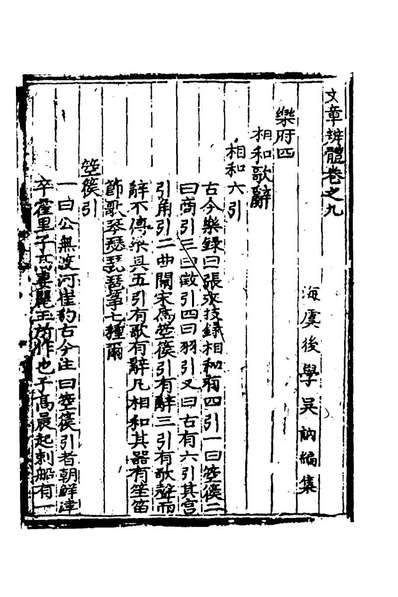 文章辨體卷之九
海虞後學吳訥編集
樂府四
相和歌辭
相和六引
古今樂録曰張永技録相和有四引一曰箜篌二
曰商引三曰徵引四曰羽引又曰古有六引其宮
引角引二曲闕宋爲箜篌引有辭三引有歌聲而
辭不傳梁具五引有歌有辭凡相和其器有笙笛
節歌琴瑟琵琶筝七種爾
箜篌引
一曰公無渡河崔豹古今注曰箜篌引者朝鮮津
卒霍里子高妻麗玉所作也子高晨起刺船有一